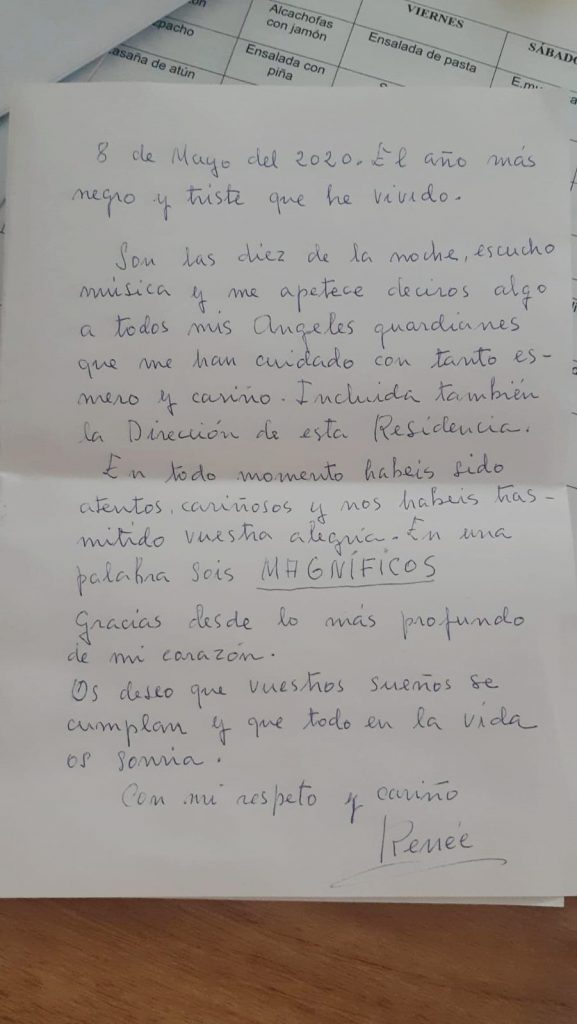 Alcachofas
con jamón
VIERNES
Ensalada de pasta
asaña de atún
Ensalada con
piña
8 de Mayo del 2020. El año más
negro y triste que he vivido.
Son las diez de la noche, escucho
música y me apetece deciros algo
a todos mis Angeles guardianes
que me han cuidado con tanto es-
mero y cariño. Incluida también
la Dirección de esta Residencia.
En todo momento habeis sido
atentos, cariñosos y nos habeis tras-
mitido vuestra alegria. En una
palabra sois MAGNÍFICOS
Gracias desde lo más profundo
de mi corazón.
Os deseo que vuestros sueños se
cumplan y que todo en la vida
os sonria.
Con mi respeto y cariño
Renée